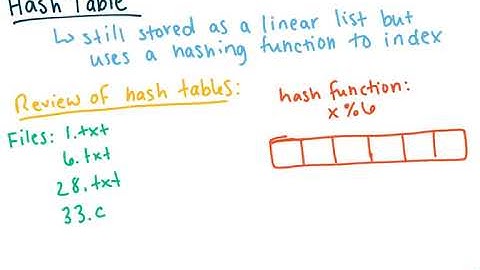 Hash Table
↳ still stored as a linear list but
uses a hashing function to index
Review of hash tables:
Files: 1.txt
6.txt
28.txt
33.c
hash function:
x % 6